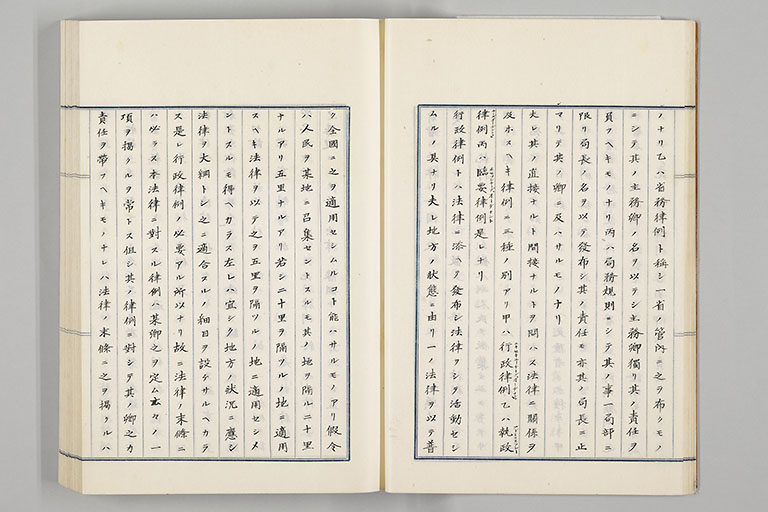 ノナリ乙ハ省務律例ト稱シ一省ノ管內ニ之ヲ布クモノ
ニシテ其ノ主務卿ノ名ヲ以テシ主務卿獨リ其ノ責任ヲ
負フヘキモノナリ丙ハ局務規則ニシテ其ノ事一局部ニ
限リ局長ノ名ヲ以テ發布シ其ノ責任モ亦其ノ局長ニ止
マリテ其ノ卿ニ及ハサルモノナリ
夫レ其ノ直接ナルト間接ナルトヲ問ハス法律ニ關係ヲ
及ホスヘキ律例ニ三種ノ別アリ甲ハ行政律例乙ハ執政
律例丙ハ臨要律例是レナリ
行政律例トハ法律ニ添テ發布シ法律ヲシテ活動セシ
ムルノ具ナリ夫レ地方ノ狀態ニ由リ一ノ法律ヲ以テ普
ク全國ニ之ヲ適用セシムルコト能ハサルモノアリ假令
ハ人民ヲ某地ニ召集セントスルモ其ノ地ヲ隔ル二十里
ナルアリ五里ナルアリ若シ二十里ヲ隔ツルノ地ニ適用
スヘキ法律ヲ以テ之ヲ五里ヲ隔ツルノ地ニ適用セシメ
ントスルモ得ヘカラス左レハ宜シク地方ノ狀況ニ應シ
法律ヲ大綱トシ之ニ適合スルノ細目ヲ設ケサルヘカラ
ス是レ行政律例ノ必要アル所以ナリ故ニ法律ノ末條ニ
ハ必ラス本法律ニ對スル律例ハ某卿之ヲ定ム云々ノ一
項ヲ揭クルヲ常トス但シ其ノ律例ニ對シテ其ノ卿之カ
責任ヲ帶フヘキモノナレハ法律ノ末條ニ之ヲ揭クルハ